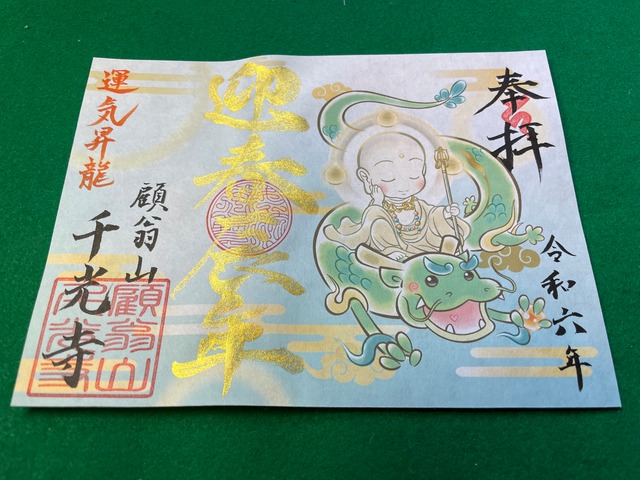 奉拝
令和六年
迎春辰年
運気昇龍
顧翁山
千光寺
顧翁山